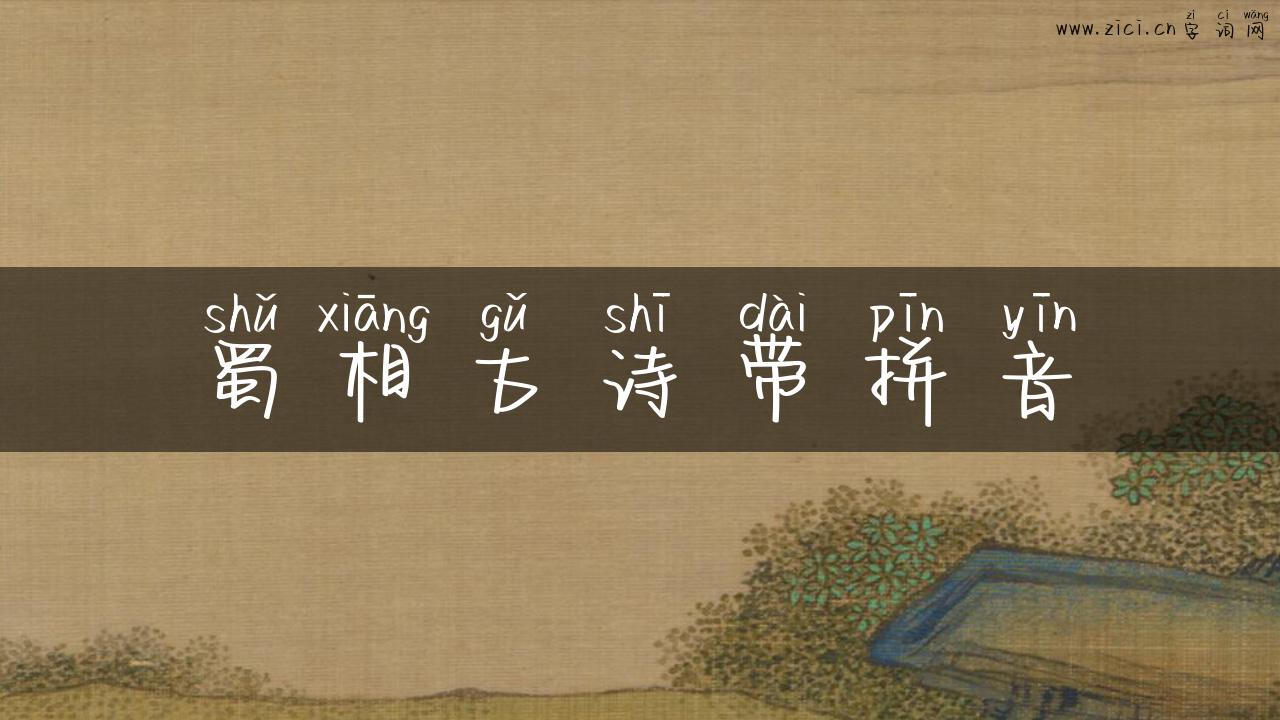 zì cí wǎng
www.zici.cn 字词网
shǔ xiāng gǔ shī dài pīn yīn
蜀相古诗带拼音